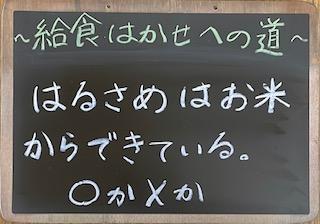 ~給食はかせへの道~
はるさめはお米
からできている。
○か×か